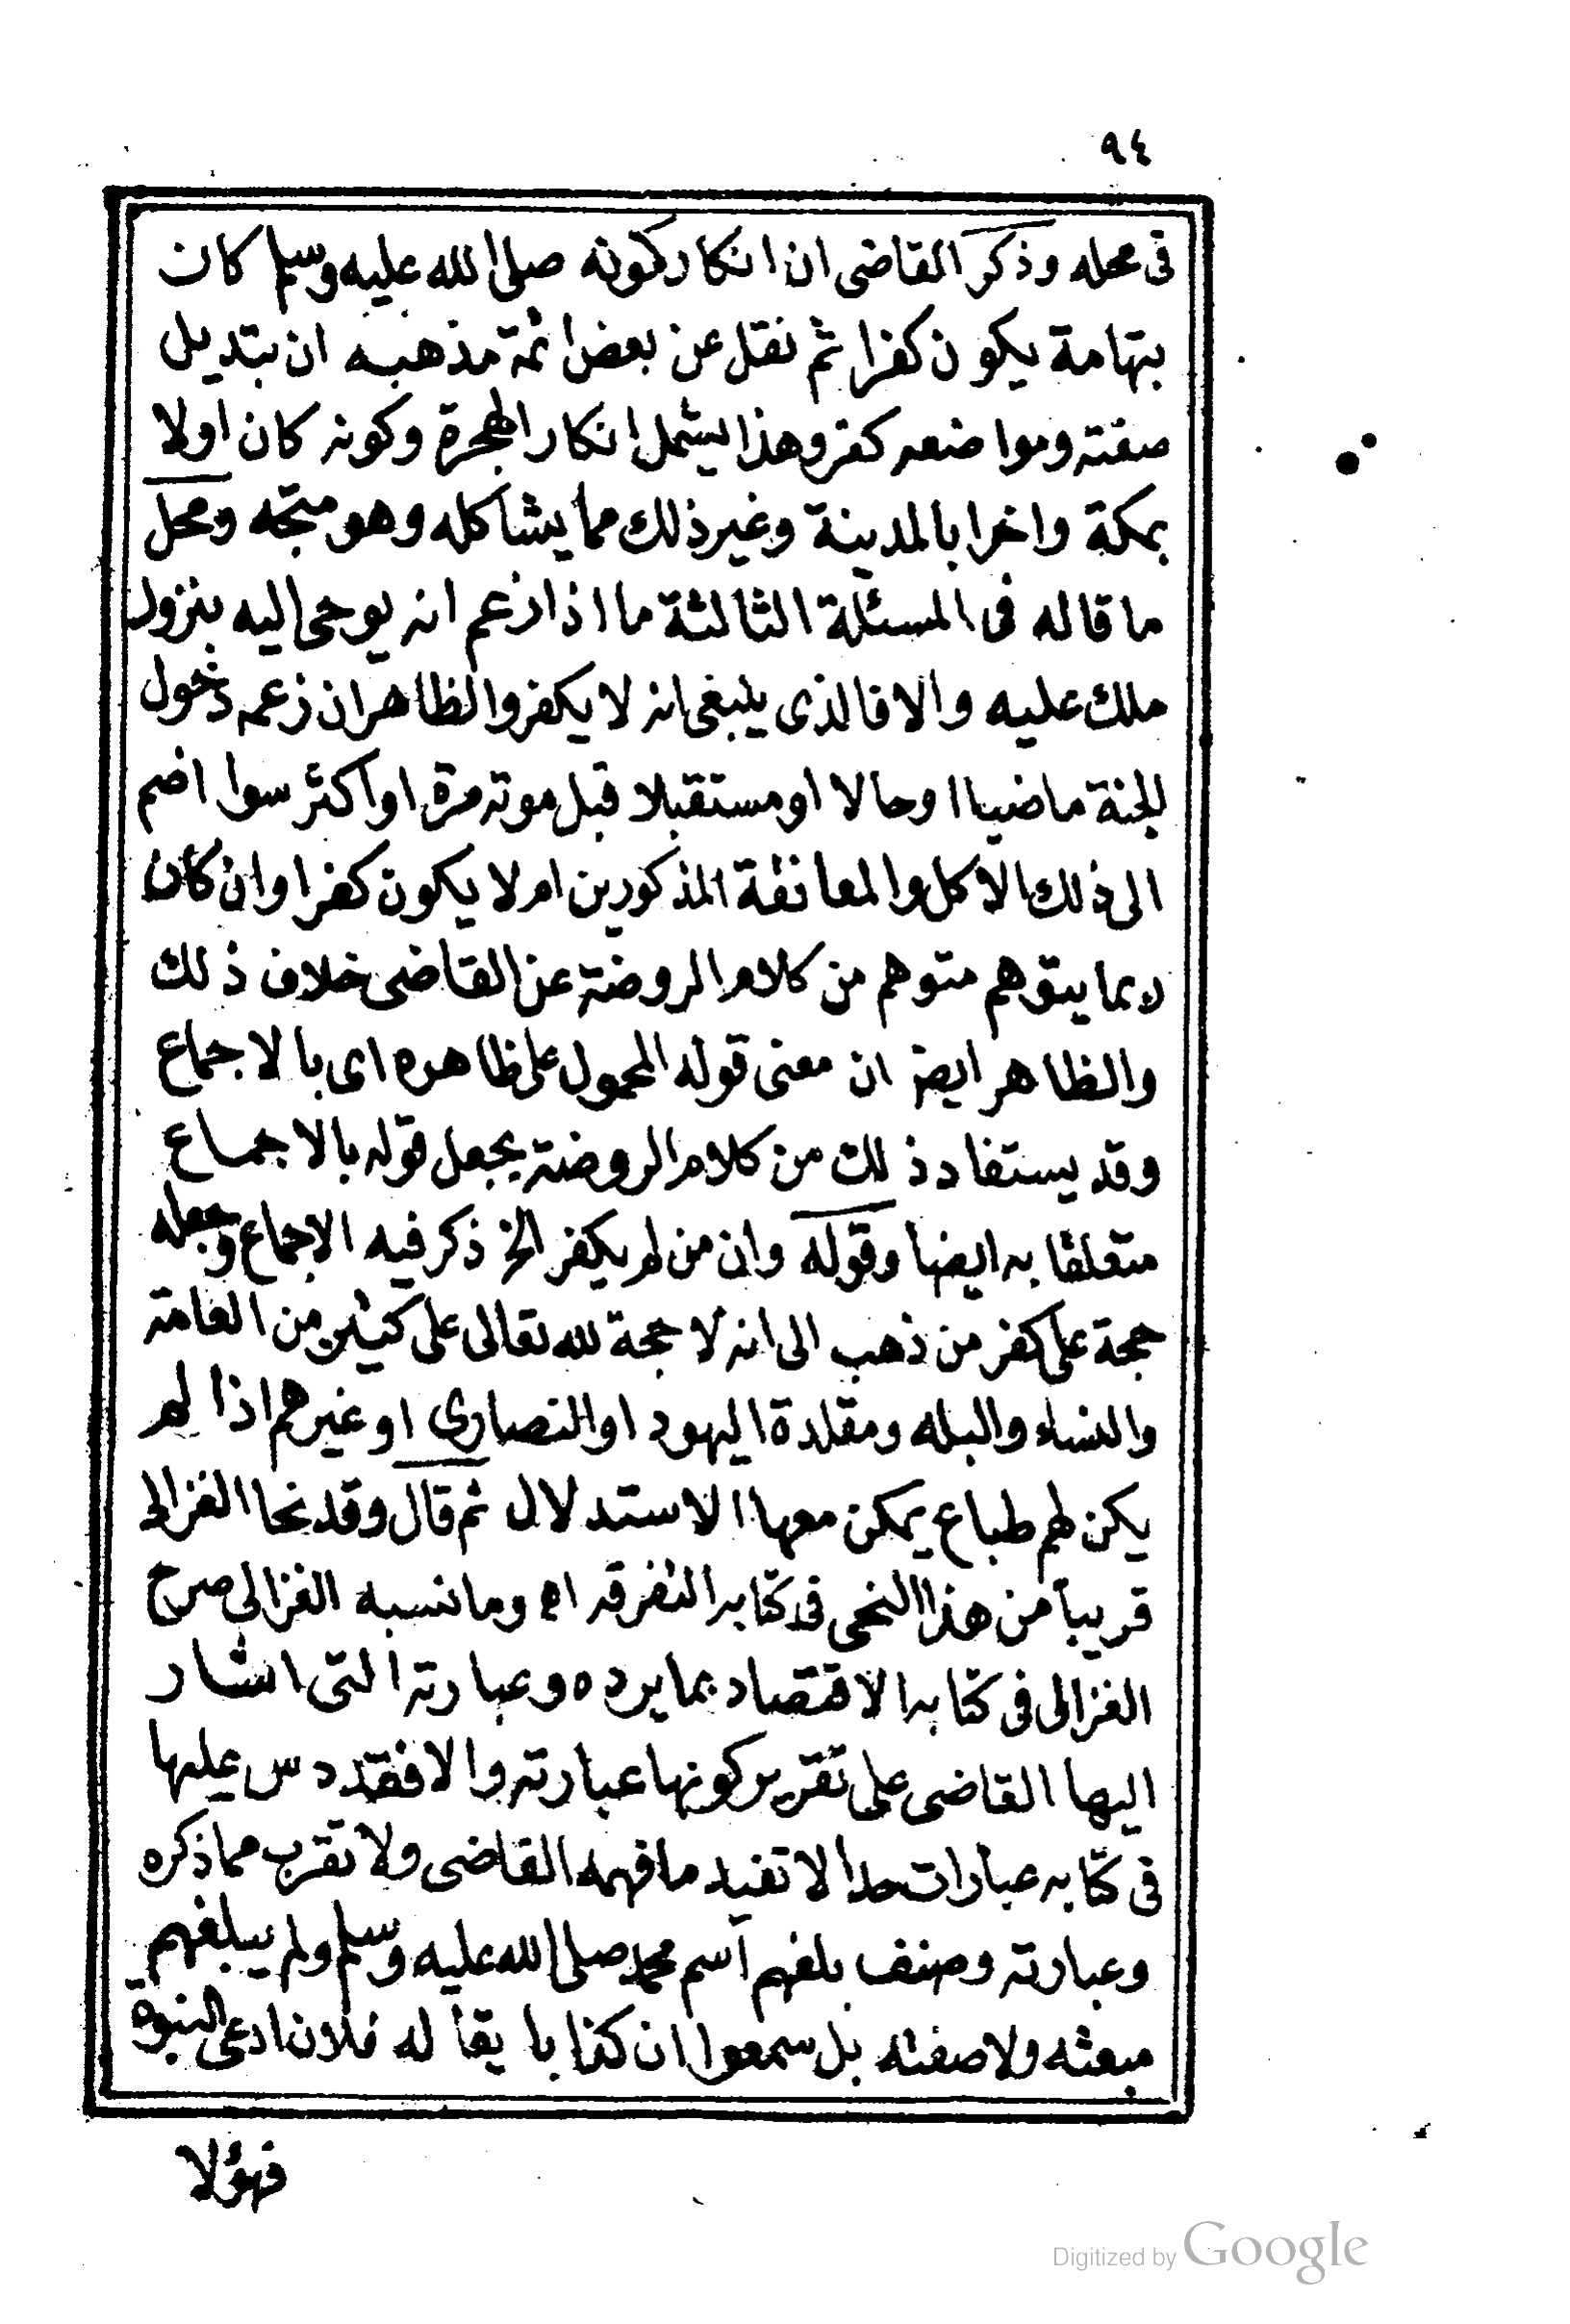 ٩٤
فى محله وذكر القاضى ان انكار كونه صلى الله عليه وسلم كان
بتهامة يكون كفرا ثم نقل عن بعض ائمة مذهبه ان تبديل
صفته ومواضعه كفر وهذا يشمل انكار الهجرة وكونه كان اولا
بمكة واخرا بالمدينة وغير ذلك مما يشاكله وهو متجه ومحل
ما قاله فى المسئلة الثالثة ما اذا زعم انه يوحى اليه بنزول
ملك عليه والا فالذى ينبغى انه لا يكفر والظاهر ان زعمه دخول
الجنة ماضيا او حالا او مستقبلا قبل موته مرة او اكثر سوا اضم
الى ذلك الاكل والمعانقة المذكورين ام لا يكون كفرا وان كان
ربما يتوهم متوهم من كلام الروضة عن القاضى خلاف ذلك
والظاهر ايضا ان معنى قوله المحمول على ظاهره اى بالاجماع
وقد يستفاد ذلك من كلام الروضة بجعل قوله بالاجماع
متعلقا به ايضا وقوله وان من لم يكفر الخ ذكر فيه الاجماع وجعله
حجة على كفر من ذهب الى انه لا حجة لله تعالى على كثير من العامة
والنساء والبله ومقلدة اليهود او النصارى او غيرهم اذا لم
يكن لهم طباع يمكن معها الاستدلال ثم قال وقد نحا الغزالى
قريبا من هذا النحى فى كتابه التفرقه اه وما نسبه الغزالى صرح
الغزالى فى كتابه الاقتصاد بما يرده وعبارته التى اشار
اليها القاضى على تقرير كونها عبارته والا فقد دس عليها
فى كتابه عبارات حدا لا تفيد ما فهمه القاضى ولا تقرب مما ذكره
وعبارته وصنف بلغهم اسم محمد صلى الله عليه وسلم ولم يبلغهم
مبعثه ولا صفته بل سمعوا ان كذابا يقال له فلان ادعى النبوة
فهؤلا
Digitized by Google